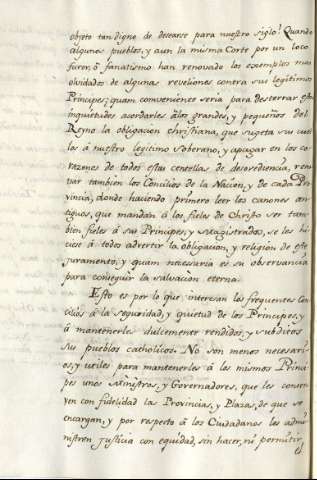 objeto tan digno de desearse para nuestro siglo! Quando
algunos pueblos, y aun la misma Corte por un loco
furor, ó fanatismo han renovado los exemplos mas
olvidados de algunas reveliones contra sus legitimos
Principes; quam conveniente seria para desterrar estas
inquietudes acordarles á los grandes, y pequeños del
Reyno la obligacion christiana, que sugeta su cuel
lo á nuestro legitimo Soberano, y apagar en los co
razones de todos estas centellas de desovediencia, reno
var tambien los Concilios de la Nacion, y de cada Pro
vincia, donde haciendo primero leer los canones an
tiguos, que mandan á los fieles de Christo ser tam
bien fieles á sus Principes, y Magistrados, se les hi
ciese á todos advertir la obligacion, y religion de este
juramento, y quam necesaria es su observancia
para conseguir la salvacion eterna.
Esto es por lo que interesan los frequentes Con
cilios á la seguridad, y quietud de los Principes, y
á mantenerles dulcemente rendidos, y subditos
sus pueblos catholicos. No son menos necesari
os, y utiles para mantenerles á los mismos Princi
pes unos Ministros, y Governadores, que les conser
ven con fidelidad las Provincias, y Plazas, de que se
encargan, y por respecto á los Ciudadanos les admi
nistren justicia con equidad, sin hacer, ni permitir